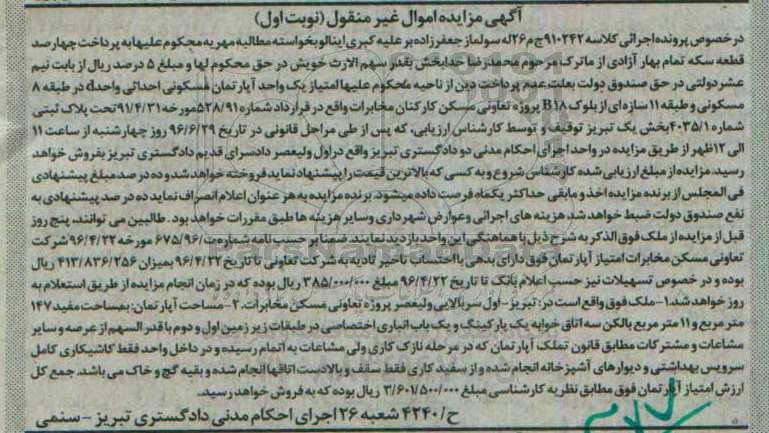 آگهی مزایده اموال غیر منقول (نوبت اول)
در خصوص پرونده اجرائی کلاسه ۹۱۰۲۴۲ج م۲۶ له سولماز جعفرزاده بر علیه کبری اینالو بخواسته مطالبه مهریه محکوم علیها به پرداخت چهارصد
قطعه سکه تمام بهار آزادی از ماترک مرحوم محمدرضا خدابخش بقدر سهم الارث خویش در حق محکوم لها و مبلغ ۵ درصد ریال از بابت نیم
عشر دولتی در حق صندوق دولت بعلت عدم پرداخت دین از ناحیه محکوم علیها امتیاز یک واحد آپارتمان مسکونی احداثی واحد در طبقه ۸
مسکونی و طبقه ۱۱ سازه ای از بلوک B۱۸ پروژه تعاونی مسکن کارکنان مخابرات واقع در قرارداد شماره ۵۲۸/۹۱ مورخه ۹۱/۴/۳۱ تحت پلاک ثبتی
شماره ۴۰۳۵/۱ بخش یک تبریز توقیف و توسط کارشناس ارزیابی، که پس از طی مراحل قانونی در تاریخ ۹۶/۶/۲۹ روز چهارشنبه از ساعت ۱۱
الی ۱۲ظهر از طریق مزایده در واحد اجرای احکام مدنی دو دادگستری تبریز واقع در اول ولیعصر دادسرای قدیم دادگستری تبریز بفروش خواهد
رسید. مزایده از مبلغ ارزیابی شده کارشناس شروع و به کسی که بالاترین قیمت را پیشنهاد نماید فروخته خواهد شد و ده در صد مبلغ پیشنهادی
فی المجلس از برنده مزایده اخذ و مابقی حداکثر یکماه فرصت داده میشود. برنده مزایده به هر عنوان اعلام انصراف نماید ده در صد پیشنهادی به
نفع صندوق دولت ضبط خواهد شد. هزینه های اجرائی و عوارض شهرداری و سایر هزینه ها طبق مقررات خواهد بود. طالبین می توانند، پنج روز
قبل از مزایده از ملک فوق الذکر به شرح ذیل با هماهنگی این واحد بازدید نمایند. ضمنا بر حسب نامه شماره ت/۶۷۵/۹۶ مورخه ۹۶/۴/۲۲ شرکت
تعاونی مسکن مخابرات امتیاز آپارتمان فوق دارای بدهی با احتساب تاخیر تادیه به شرکت تعاونی تا تاریخ ۹۶/۴/۲۲ بمیزان ۴۱۳/۸۳۶/۲۵۶ ریال
بوده و در خصوص تسهیلات نیز حسب اعلام بانک تا تاریخ ۹۶/۴/۲۲ مبلغ ۳۸۵/۰۰۰/۰۰۰ ریال بوده که در زمان انجام مزایده از طریق استعلام به
روز خواهد شد. ۱-ملک فوق واقع است در: تبریز – اول سربالایی ولیعصر پروژه تعاونی مسکن مخابرات. ۲-مساحت آپارتمان: بمساحت مفید ۱۴۷
متر مربع و ۱۱ متر مربع بالکن سه اتاق خوابه یک پارکینگ و یک باب انباری اختصاصی در طبقات زیر زمین اول و دوم با قدر السهم از عرصه و سایر
مشاعات و مشترکات مطابق قانون تملک آپارتمان که در مرحله نازک کاری ولی مشاعات به اتمام رسیده و در داخل واحد فقط کاشیکاری کامل
سرویس بهداشتی و دیوارهای آشپزخانه انجام شده و از سفید کاری فقط سقف و بالادست اتاقها انجام شده و بقیه گچ و خاک می باشد. جمع کل
ارزش امتیاز آپارتمان فوق مطابق نظریه کارشناسی مبلغ ۳/۶۰۱/۵۰۰/۰۰۰ ریال بوده که به فروش خواهد رسید.
ح/۴۲۴۰ شعبه ۲۶ اجرای احکام مدنی دادگستری تبریز –سنمی